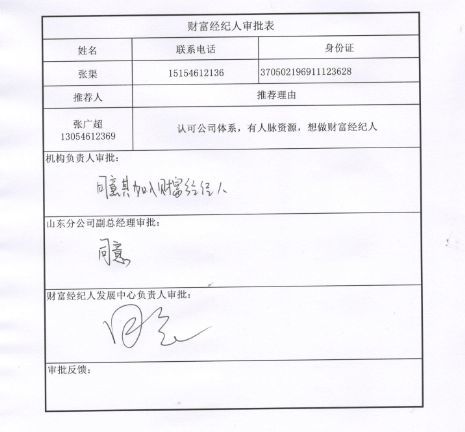 财富经纪人审批表
姓名 联系电话 身份证
张渠 15154612136 370502196911123628
推荐人 推荐理由
张广超
13054612369
认可公司体系，有人脉资源，想做财富经纪人
机构负责人审批：
同意其加入财富经纪人
山东分公司副总经理审批：
同意
财富经纪人发展中心负责人审批：
同意
审批反馈：